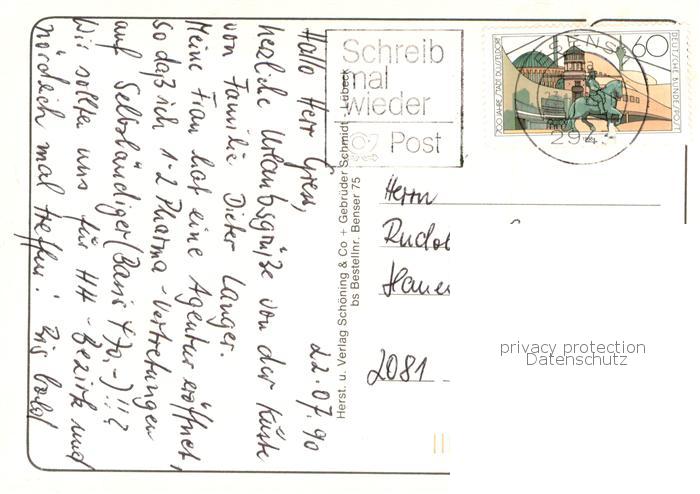 22.07.90
Hallo Herr
herzliche Urlaubsgrüße von der Küste
von Familie Dieter Langer.
Meine Frau hat eine Agentur eröffnet,
so daß ich 1-2 Pharma-Vertretungen
auf Selbständiger (Basis
Wir sollten uns für HH-Bezirk und
nördlich mal treffen! Bis bald
Herst. u. Verlag Schöning & Co + Gebrüder Schmidt · Lübeck
bs Bestellnr. Benser 75
Schreib
mal
wieder
Post
700 JAHRE STADT DÜSSELDORF
60
DEUTSCHE BUNDESPOST
Herrn
2081
privacy protection
Datenschutz